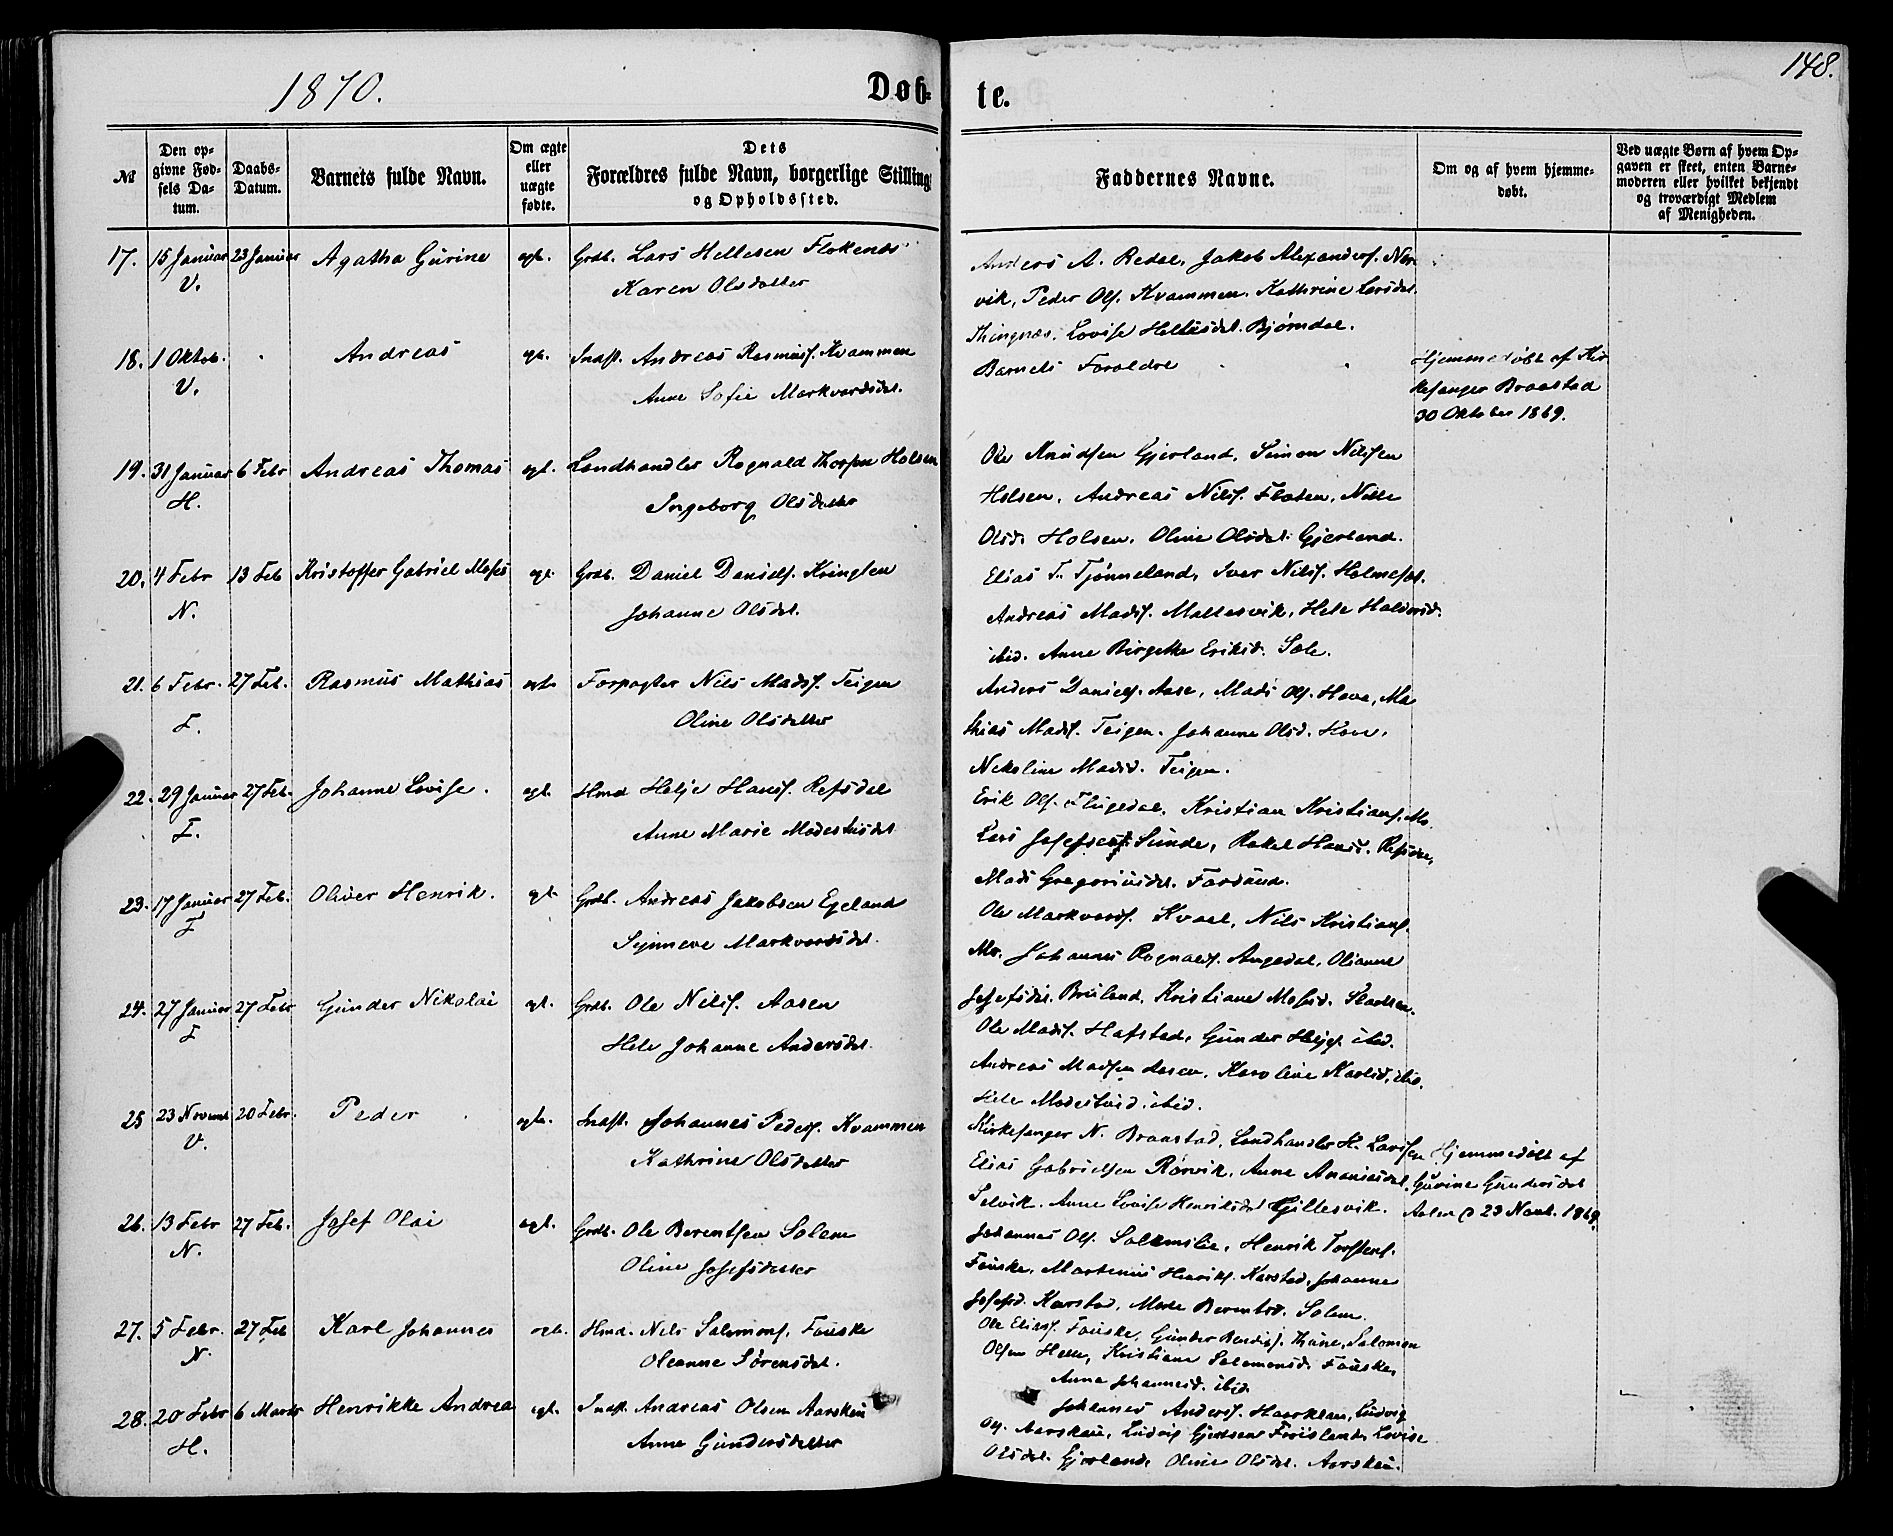 1870.
Døb-
te.
148.
№
Den op-
givne Fød-
sels Da-
tum.
Daabs-
Datum.
Barnets fulde Navn.
Om ægte
eller
uægte
fødte.
Dets
Forældres fulde Navn, borgerlige Stilling
og Opholdssted.
Faddernes Navne.
Om og af hvem hjemme-
døbt.
Ved uægte Børn af hvem Op-
gaven er skeet, enten Barne-
moderen eller hvilket bekjendt
og troværdigt Medlem
af Menigheden.
17. 15 Januar 23 Januar Agatha Gurine egt. Grdb. Lars Hellesen Flokenes
V. Karen Olsdatter
Anders A. Redal, Jakob Alexanders. Nor
vik, Peder Ols. Kvammen, Kathrine Larsdat.
Thingnæs, Lovise Hellesdat. Bjørndal.
18. 1 Oktob. Andreas egt. Indst. Andreas Rasmuss. Kvammen
V. Anne Sofie Markvardsdat.
Barnets Forældre
Hjemmedøbt af Kir
kesanger Braastad
30 Oktober 1869.
19. 31 Januar 6 Febr Andreas Thomas egt. Landhandler Rognald Thorsen Holsen
H. Ingeborg Olsdatter
Ole Knudsen Gjerland, Simon Nilsen
Holsen, Andreas Nils. Flaten, Nille
Olsd. Holsen, Oline Olsdat. Gjerland.
20. 4 Febr 13 Feb Kristoffer Gabriel Moses egt. Grdb. Daniel Daniels. Kringlen
N. Johanne Olsdat.
Elias T. Tjønneland, Iver Nils. Holmeset.
Andreas Mads. Mallesvik, Hele Haldorsd.
ibid. Anne Birgette Eriksd. Sæle.
21. 6 Febr. 27 Feb. Rasmus Mathias egt. Forpagter Nils Mads. Teigen
F. Oline Olsdatter
Anders Daniels. Aase, Mads Ols. Hove, Ma
thias Mads. Teigen. Johanne Olsd.
Nikoline Madsd. Teigen.
22. 29 Januar 27 Feb. Johanne Lovise. egt. Hmd Helje Hans. Refsdal
F. Anne Marie Modestusdat
Erik Ols. Flugedal, Kristian Kristians. Mo.
Lars Josefsen Sunde, Rakel Hansd. Refsdal,
Mads Gregoriusdat. Farsund.
23. 17 Januar 27 Feb. Oliver Henrik. egt Grdb. Andreas Jakobsen Egeland
F Synneve Markvardsdat.
Ole Markvards. Kvaal, Nils Kristians.
Mo. Johannes Rognalds. Angedal, Olianne
24. 27 Januar 27 Febr Gunder Nikolai egt. Grdb. Ole Nils. Aasen
F Hele Johanne Andersdat.
Josefsdat. Bruland, Kristiane Mosesd.
Ole Mads. Hafstad, Gunder Heljes. ibid.
Andreas Madsen Aasen, Karoline Karlsd. ibid.
Hele Modestusd. ibid.
25 23 Novemb 20 Febr. Peder egt. Indst. Johannes Peders. Kvammen
V. Kathrine Olsdatter
Kirkesanger N. Braastad, Landhandler H. Larssen
Elias Gabrielsen Rørvik, Anne Ananiasdat.
Selvik. Anne Lovise Henriksdat Gillesvik.
Hjemmedøbt af
Gurine Gundersdat
Aalen d 23 Novb. 1869.
26. 13 Febr 27 Feb. Josef Olai egt. Grdb. Ole Berentsen Solem
N. Oline Josefsdatter
Johannes Ols. Solemslie, Henrik Torstens.
Fauske, Martinus Henriks. Karstad, Johanne
Josefsd. Karstad, Marte Berentsd. Solem.
27. 5 Febr. 27 Feb Karl Johannes egt. Hmd. Nils Salomons. Fauske
N. Oleanne Sørensdat.
Ole Elias. Fauske, Gunder Bendiks. Thune, Salomon
Olsen Helle, Kristiane Salomonsd. Fauske,
Anna Johannesd. ibid
28. 20 Febr 6 Marts Henrikke Andrea egt. Indst. Andreas Olsen Aarskau
H. Anne Gundersdatter
Johannes Anders. Haarklau, Ludvig
Ols. Aarskau, Ludvig Gjertsen Frøisland, Lovise
Olsdat. Gjerland, Oline Olsdat. Aarskau.